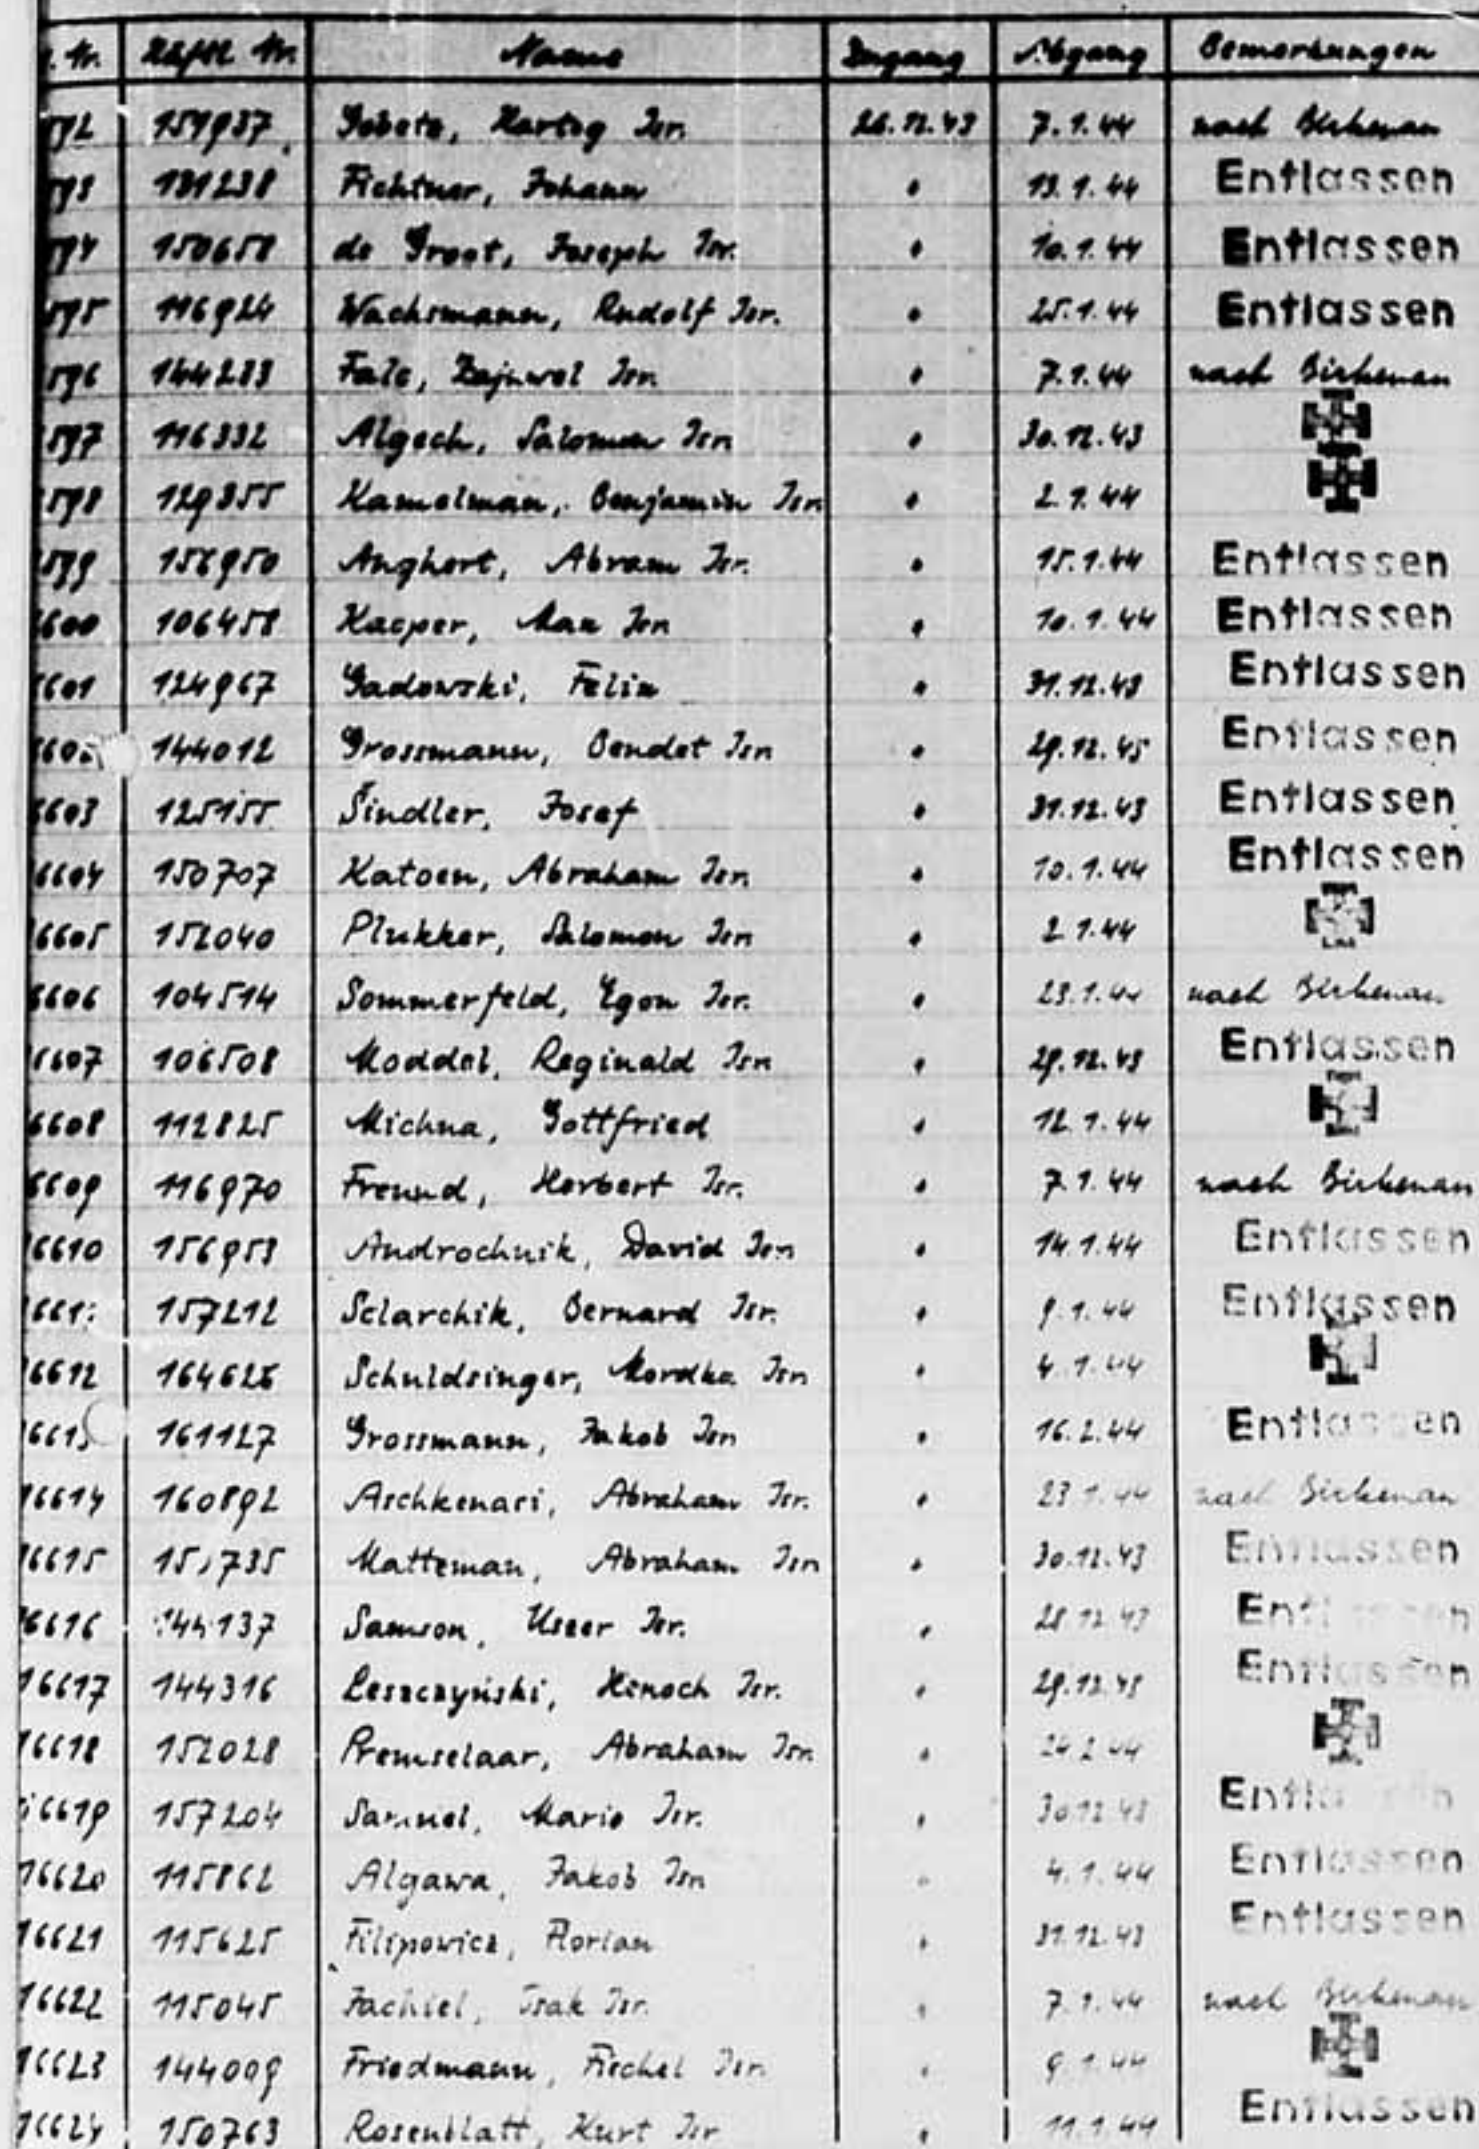 Nr. Häftl. Nr. Name Zugang Abgang Bemerkungen
592 157937 Gobets, Hartog Isr. 26.12.43 7.1.44 nach Birkenau
593 131238 Fichtner, Johann " 13.1.44 Entlassen
594 150658 de Groot, Joseph Isr. " 10.1.44 Entlassen
595 116924 Wachsmann, Rudolf Isr. " 25.1.44 Entlassen
596 144233 Fale, Zajnwel Isr. " 7.1.44 nach Birkenau
597 116332 Algech, Salomon Isr. " 30.12.43
598 129355 Kamelman, Benjamin Isr. " 2.1.44
599 156950 Anghert, Abram Isr. " 15.1.44 Entlassen
6600 106458 Kasper, Max Isr. " 10.1.44 Entlassen
6601 124967 Gadowski, Felix " 31.12.43 Entlassen
660 144012 Grossmann, Bendet Isr. " 29.12.43 Entlassen
6603 125155 Šindler, Josef " 31.12.43 Entlassen
6604 150707 Katoen, Abraham Isr. " 10.1.44 Entlassen
6605 152040 Plukker, Salomon Isr. " 2.1.44
6606 104514 Sommerfeld, Egon Isr. " 23.1.44 nach Birkenau
6607 106508 Moddel, Reginald Isr. " 29.12.43 Entlassen
6608 112825 Michna, Gottfried " 12.1.44
6609 116970 Freund, Herbert Isr. " 7.1.44 nach Birkenau
6610 156953 Androchnik, David Isr. " 14.1.44 Entlassen
661 157212 Sclarchik, Bernard Isr. " 9.1.44 Entlassen
6612 164626 Schuldsinger, Mordka Isr. " 4.1.44
6613 161127 Grossmann, Jakob Isr. " 16.2.44 Entlassen
16614 160892 Aschkenasi, Abraham Isr. " 23.1.44 nach Birkenau
16615 15 735 Matteman, Abraham Isr. " 30.12.43 Entlassen
6616 144137 Samson, Uszer Isr. " 28.12.43 Entlassen
16617 144316 Leszczyński, Henoch Isr. " 29.12.43 Entlassen
16618 152028 Premselaar, Abraham Isr. " 24.2.44
16619 157204 Samuel, Mario Isr. " 30.12.43 Entlassen
16620 115862 Algawa, Jakob Isr. " 4.1.44 Entlassen
16621 115625 Filipowicz, Florian " 31.12.43 Entlassen
16622 115045 Jachiel, Isak Isr. " 7.1.44 nach Birkenau
16623 144009 Friedmann, Fischel Isr. " 9.1.44
16624 150763 Rosenblatt, Kurt Isr " 11.1.44 Entlassen